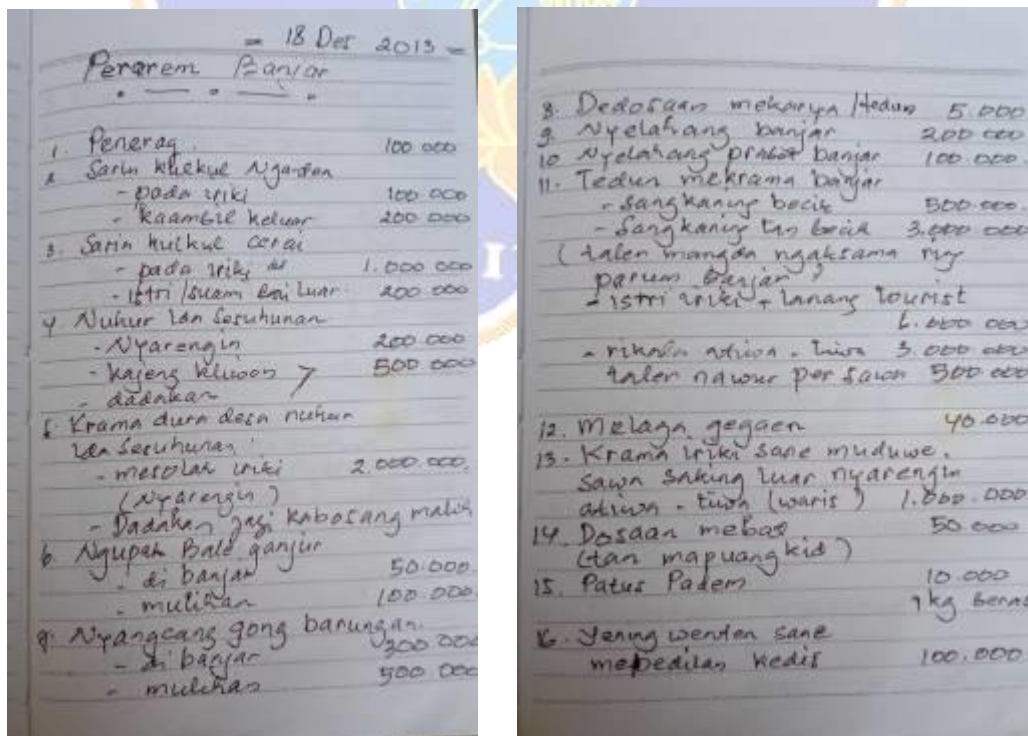 - 18 Des 2013 -
Perarem Banjar
1. Penerag 100 000
2 Sarin kulkul Nganten
- pada iriki 100 000
- kaambil keluar 200 000
3. Sarin kulkul cerai
- pada iriki 1.000 000
- istri / suami dari luar 200 000
4 Nuhur Ida Sesuhunan
- Nyarengin 200 000
- Kajeng kliwon > 500 000
- dadakan
5. Krama dura desa nuhur
Ida Sesuhunan
- mesolah iriki 2.000 000
(Nyarengin)
- Dadakan
6. Ngupah Bale ganjur
- di banjar 50.000
- mulihan 100 000
- di banjar 300 000
- mulihan 500 000
8. Dedosaan mekarya / tedun 5.000
9. Nyelahang banjar 200 000
10 Nyelahang prabot banjar 100 000
11. Tedun mekrama banjar
- Sangkaning becik 500.000
- Sangkaning tan becik 3.000 000
(taler mangda ngaksama ring
parum banjar)
- istri iriki + lanang tourist
000 000
3.000 000
taler nawur per sawa 500 000
12. Melaga gegaen 40.000
13. Krama iriki sane muduwe
sawa saking luar nyarengin
atiwa - tiwa (waris) 1.000.000
14. Dosaan mebas 50 000
(tan mapuangkid)
15. Patus Padem 10.000
1 kg beras
16. Yening wenten sane
mebedilan kedis 100.000